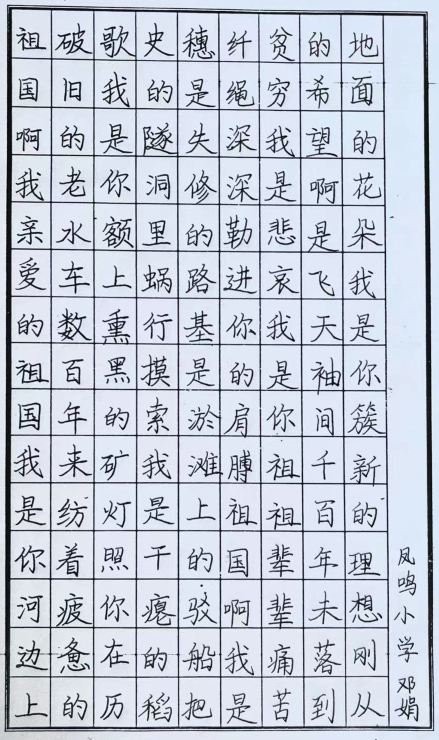 祖国啊我亲爱的祖国我是你河边上
破旧的老水车数百年来纺着疲惫的
歌我是你额上熏黑的矿灯照你在历
史的隧洞里蜗行摸索我是干瘪的稻
穗是失修的路基是淤滩上的驳船把
纤绳深深勒进你的肩膊祖国啊我是
贫穷我是悲哀我是你祖祖辈辈痛苦
的希望啊是飞天袖间千百年未落到
地面的花朵我是你簇新的理想刚从
凤鸣小学 邓娟